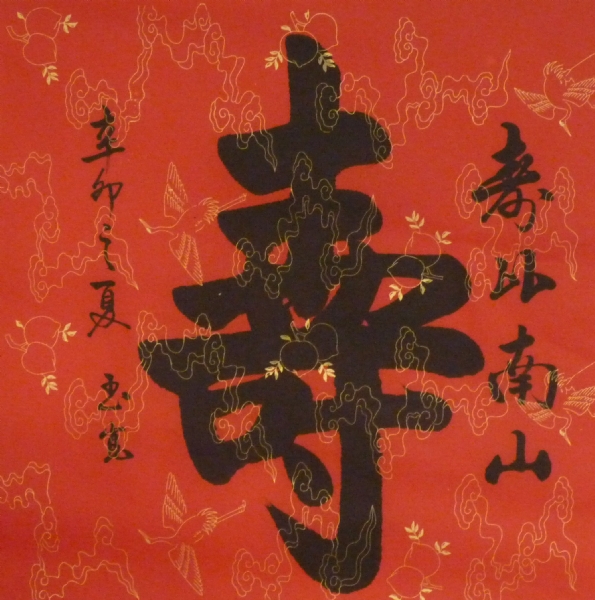 壽比南山
壽
辛卯之夏 玉寬